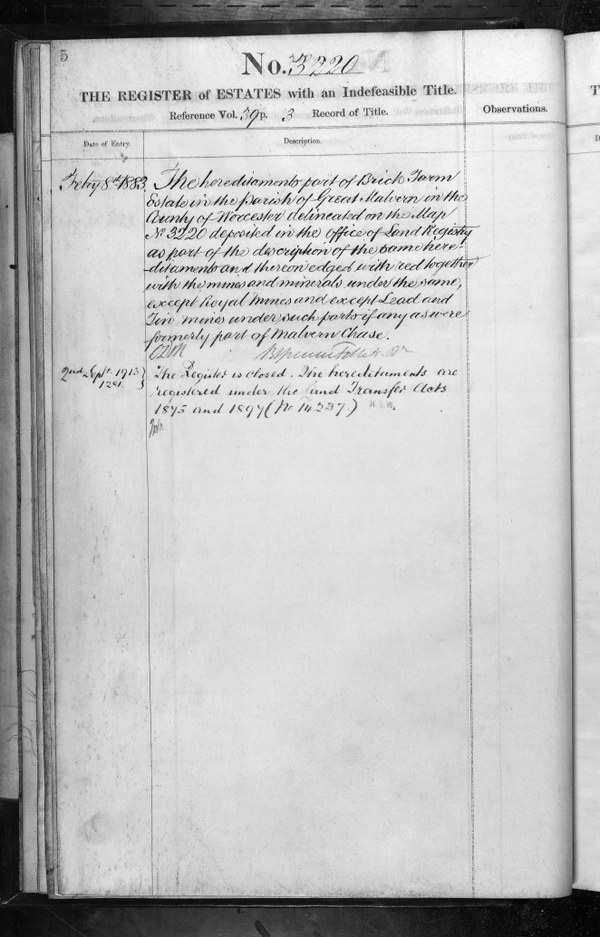 5
No. 3220
THE REGISTER of ESTATES with an Indefeasible Title.
Reference Vol. 39 p. 3 Record of Title.
Observations.
Date of Entry.
Description.
Feby 8th 1883. The hereditaments part of Brick Farm
Estate in the parish of Great Malvern in the
County of Worcester delineated on the Map
No 3220 deposited in the office of Land Registry
as part of the description of the same here-
ditaments and thereon edged with red together
with the mines and minerals under the same,
except Royal Mines and except Lead and
Tin mines under such parts if any as were
formerly part of Malvern Chase.
2nd Septr 1913 The Register is closed. The hereditaments are
1281 registered under the Land Transfer Acts
1875 and 1897 (No 14237)